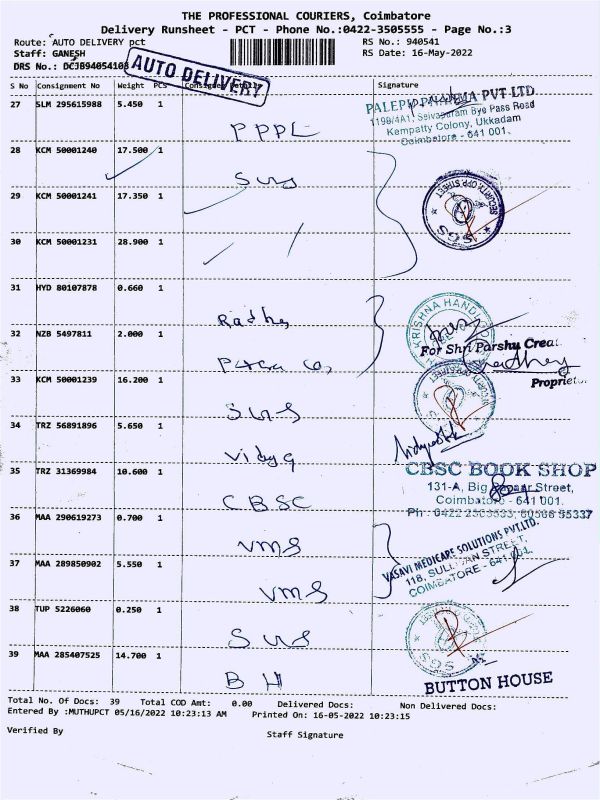 THE PROFESSIONAL COURIERS, Coimbatore
Delivery Runsheet - PCT - Phone No.:0422-3505555 - Page No.:3
Route: AUTO DELIVERY pct RS No.: 940541
Staff: GANESH RS Date: 16-May-2022
DRS No.: DCJB94054103
AUTO DELIVERY
S No Consignment No Weight PCs Consignee Signature
27 SLM 295615988 5.450 1 PPPL
PVT LTD
1198/4A1, Selvapuram Bye Pass Road
Kempatty Colony, Ukkadam
Coimbatore - 641 001.
28 KCM 50001240 17.500 1 SUS
29 KCM 50001241 17.350 1
SECURITY, OPP STREET
SGS
30 KCM 50001231 28.900 1
31 HYD 80107878 0.660 1
KRISHNA HANDL
32 NZB 5497811 2.000 1
For Shri Parshu Creat
Proprietor
33 KCM 50001239 16.200 1 SUS
34 TRZ 56891896 5.650 1 Vidya
35 TRZ 31369984 10.600 1 CBSC
CBSC BOOK SHOP
131-A, Big Bazaar Street,
Coimbatore - 641 001.
Ph : 0422
36 MAA 290619273 0.700 1 VMS
VASAVI MEDICARE SOLUTIONS PVT.LTD.
118, SULLIVAN STREET,
COIMBATORE - 641 001.
37 MAA 289850902 5.550 1 VMS
38 TUP 5226060 0.250 1 SUS
SGS
39 MAA 285407525 14.700 1 BH
BUTTON HOUSE
Total No. Of Docs: 39 Total COD Amt: 0.00 Delivered Docs: Non Delivered Docs:
Entered By :MUTHUPCT 05/16/2022 10:23:13 AM Printed On: 16-05-2022 10:23:15
Verified By Staff Signature